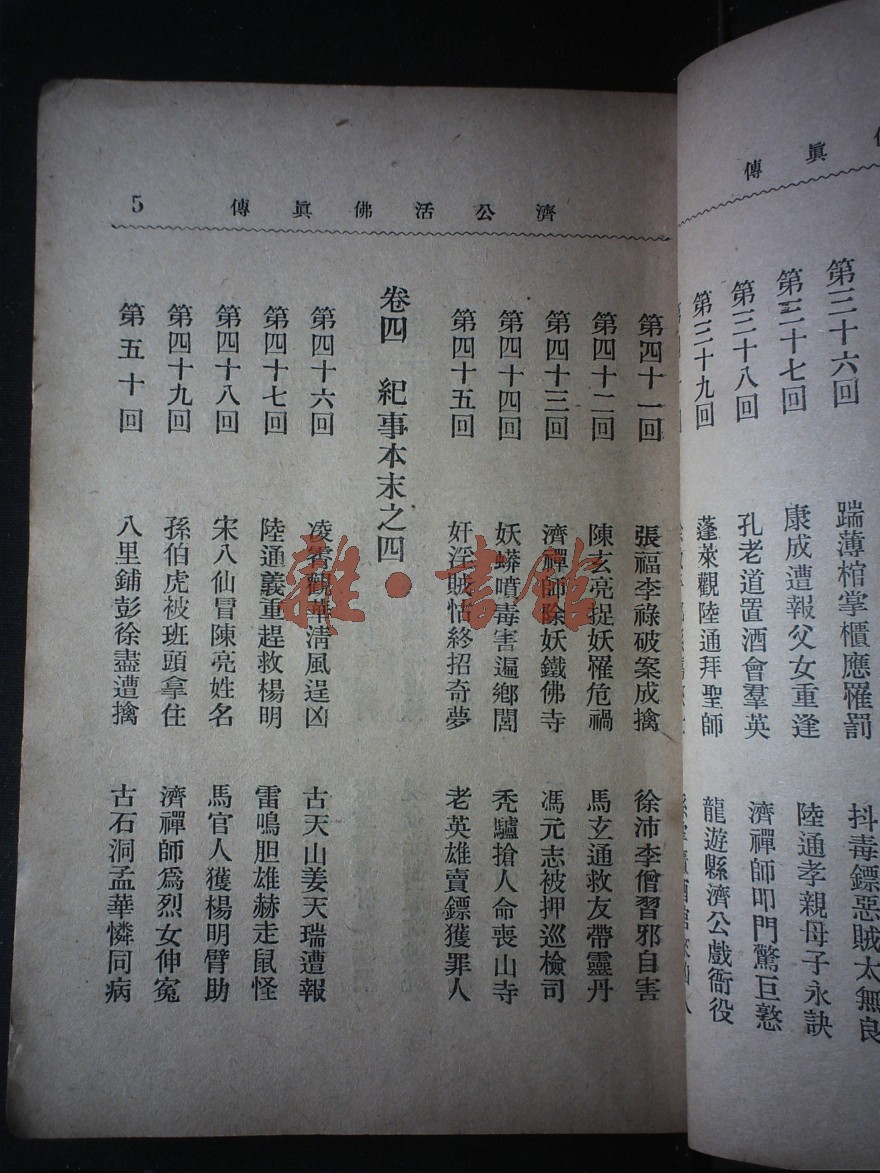 傳眞
第三十六回 踹薄棺掌櫃應罹罰 抖毒鏢惡賊太無良
第三十七回 康成遭報父女重逢 陸通孝親母子永訣
第三十八回 孔老道置酒會羣英 濟禪師叩門驚巨憝
第三十九回 蓬萊觀陸通拜聖師 龍遊縣濟公戲衙役
濟公活佛眞傳 5
第四十一回 張福李祿破案成擒 徐沛李僧習邪自害
第四十二回 陳玄亮捉妖罹危禍 馬玄通救友帶靈丹
第四十三回 濟禪師除妖鐵佛寺 馮元志被押巡檢司
第四十四回 妖蟒噴毒害遍鄉閭 禿驢搶人命喪山寺
第四十五回 奸淫賊怙終招奇夢 老英雄賣鏢獲罪人
卷四 紀事本末之四
第四十六回 凌霄觀華淸風逞凶 古天山姜天瑞遭報
第四十七回 陸通義重趕救楊明 雷鳴胆雄赫走鼠怪
第四十八回 宋八仙冒陳亮姓名 馬官人獲楊明臂助
第四十九回 孫伯虎被班頭拿住 濟禪師爲烈女伸寃
第五十回 八里鋪彭徐盡遭擒 古石洞孟華憐同病
雜·書館